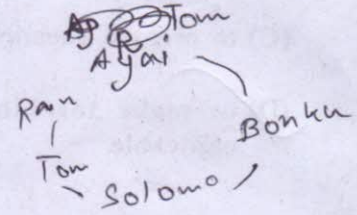 Tom
Ajai
Ram
Bonku
Tom
Solomo